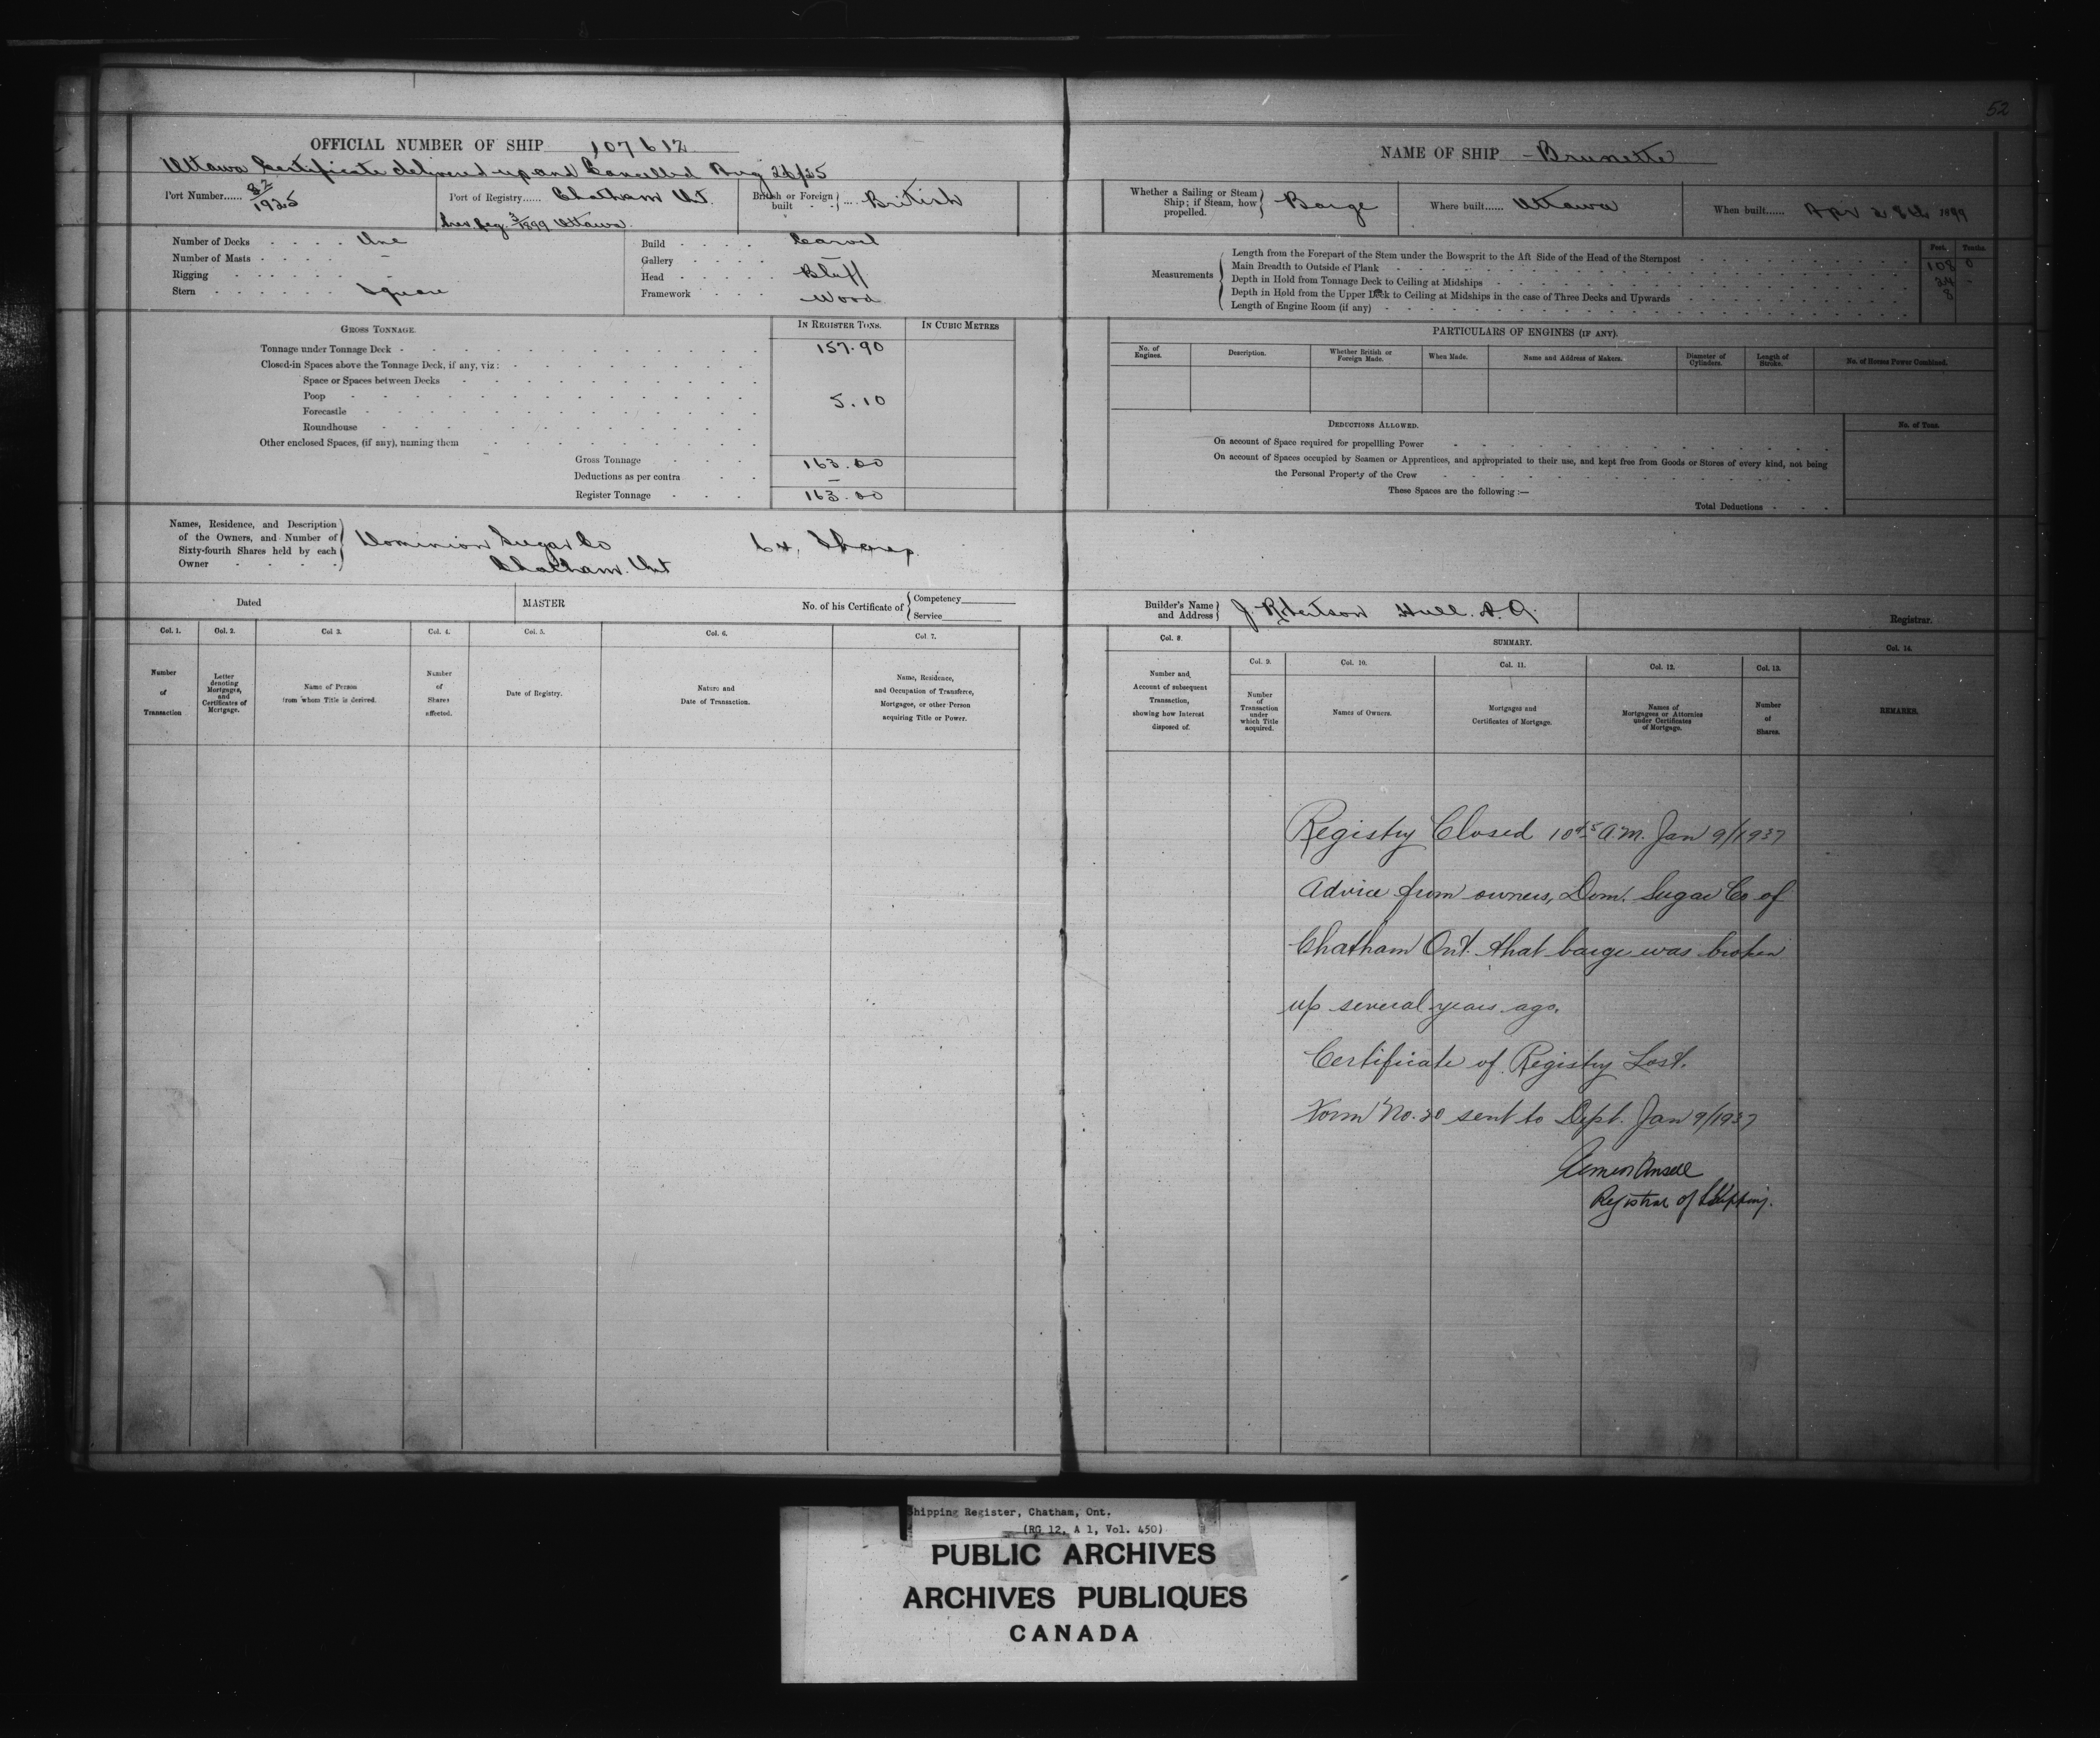 52
OFFICIAL NUMBER OF SHIP 107612
NAME OF SHIP - Brunette
Ottawa Certificate delivered up and Cancelled Aug 26/25
Port Number...... 82/1925
Port of Registry...... Chatham Ont.
British or Foreign built .... British
Whether a Sailing or Steam Ship; if Steam, how propelled. Barge
Where built...... Ottawa
When built...... Apr 28th 1899
3/1899 Ottawa.
Number of Decks . . . . One
Number of Masts . . . . –
Rigging . . . . . . –
Stern . . . . . . Square
Build . . . . Carvel
Gallery . . . . –
Head . . . . . Bluff
Framework . . . Wood
Measurements
Feet. Tenths.
Length from the Forepart of the Stem under the Bowsprit to the Aft Side of the Head of the Sternpost 108 0
Main Breadth to Outside of Plank 24 -
Depth in Hold from Tonnage Deck to Ceiling at Midships 8
Depth in Hold from the Upper Deck to Ceiling at Midships in the case of Three Decks and Upwards
Length of Engine Room (if any)
GROSS TONNAGE.
IN REGISTER TONS.
IN CUBIC METRES
Tonnage under Tonnage Deck - 157.90
Closed-in Spaces above the Tonnage Deck, if any, viz:
Space or Spaces between Decks
Poop 5.10
Forecastle
Roundhouse
Other enclosed Spaces, (if any), naming them
Gross Tonnage 163.00
Deductions as per contra –
Register Tonnage 163.00
PARTICULARS OF ENGINES (IF ANY).
No. of Engines.
Description.
Whether British or Foreign Made.
When Made.
Name and Address of Makers.
Diameter of Cylinders.
Length of Stroke.
No. of Horses Power Combined.
DEDUCTIONS ALLOWED.
No. of Tons.
On account of Space required for propellling Power
On account of Spaces occupied by Seamen or Apprentices, and appropriated to their use, and kept free from Goods or Stores of every kind, not being
the Personal Property of the Crew
These Spaces are the following :—
Total Deductions
Names, Residence, and Description
of the Owners, and Number of
Sixty-fourth Shares held by each
Owner
Dominion Sugar Co 64, Shares
Chatham. Ont
Dated
MASTER
No. of his Certificate of
Competency
Service
Builder's Name and Address J. Robertson Hull. P. Q.
Registrar.
Col. 1.
Number of Transaction
Col. 2.
Letter denoting Mortgages, and Certificates of Mortgage.
Col 3.
Name of Person from whom Title is derived.
Col. 4.
Number of Shares affected.
Col. 5.
Date of Registry.
Col. 6.
Nature and Date of Transaction.
Col 7.
Name, Residence, and Occupation of Transferee, Mortgagee, or other Person acquiring Title or Power.
Col. 8.
Number and Account of subsequent Transaction, showing how Interest disposed of.
SUMMARY.
Col. 9.
Number of Transaction under which Title acquired.
Col. 10.
Names of Owners.
Col. 11.
Mortgages and Certificates of Mortgage.
Col. 12.
Names of Mortgagees or Attornies under Certificates of Mortgage.
Col. 13.
Number of Shares.
Col. 14.
REMARKS.
Registry Closed 10 45 A.M. Jan 9/1937
Advice from owners, Dom. Sugar Co of
Chatham Ont. that barge was broken
up several years ago.
Certificate of Registry Lost.
Form No. 20 sent to Dept. Jan 9/1937
Registrar of Shipping.
Shipping Register, Chatham, Ont.
(RG 12, A 1, Vol. 450)
PUBLIC ARCHIVES
ARCHIVES PUBLIQUES
CANADA